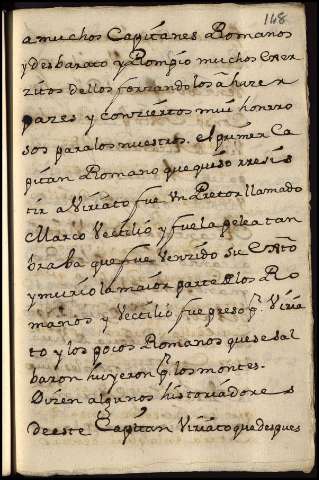 148
a muchos Capitanes Romanos
y desbarato y Rompio muchos Exer
zitos dellos forzandolos à hazer
pazes y conziertos mui honrro
sos para los nuestros. el primer Ca
pitan Romano que quiso rresis
tir a Viriato fue Vn Pretor llamado
Marco Vectilio y fue la pelea tan
braba que fue Venzido su Exto
y murio la maior parte de los Ro
manos y Vectilio fue preso pr. Viria
to y los pocos Romanos que se sal
baron huyeron pr. los montes.
Dizen algunos historiadores
de este Capitan Viriato que despues